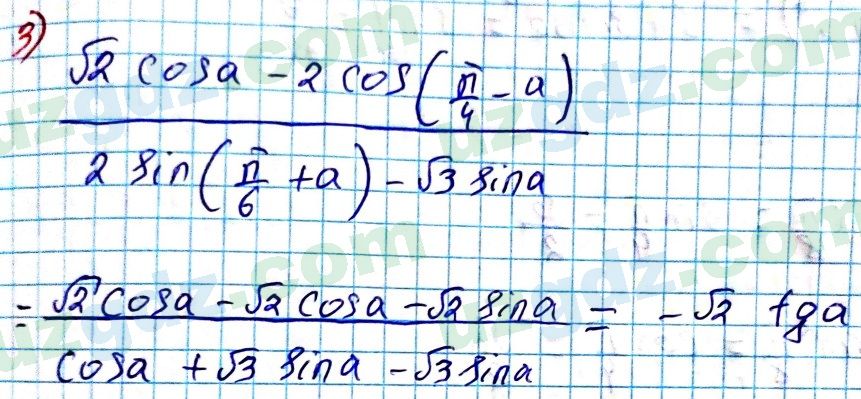 3)
√2 cosa - 2 cos(π/4 - a)
2 sin(π/6 + a) - √3 sina
= √2 cosa - √2 cosa - √2 sina = - √2 tga
cosa + √3 sina - √3 sina
uzgdz.com